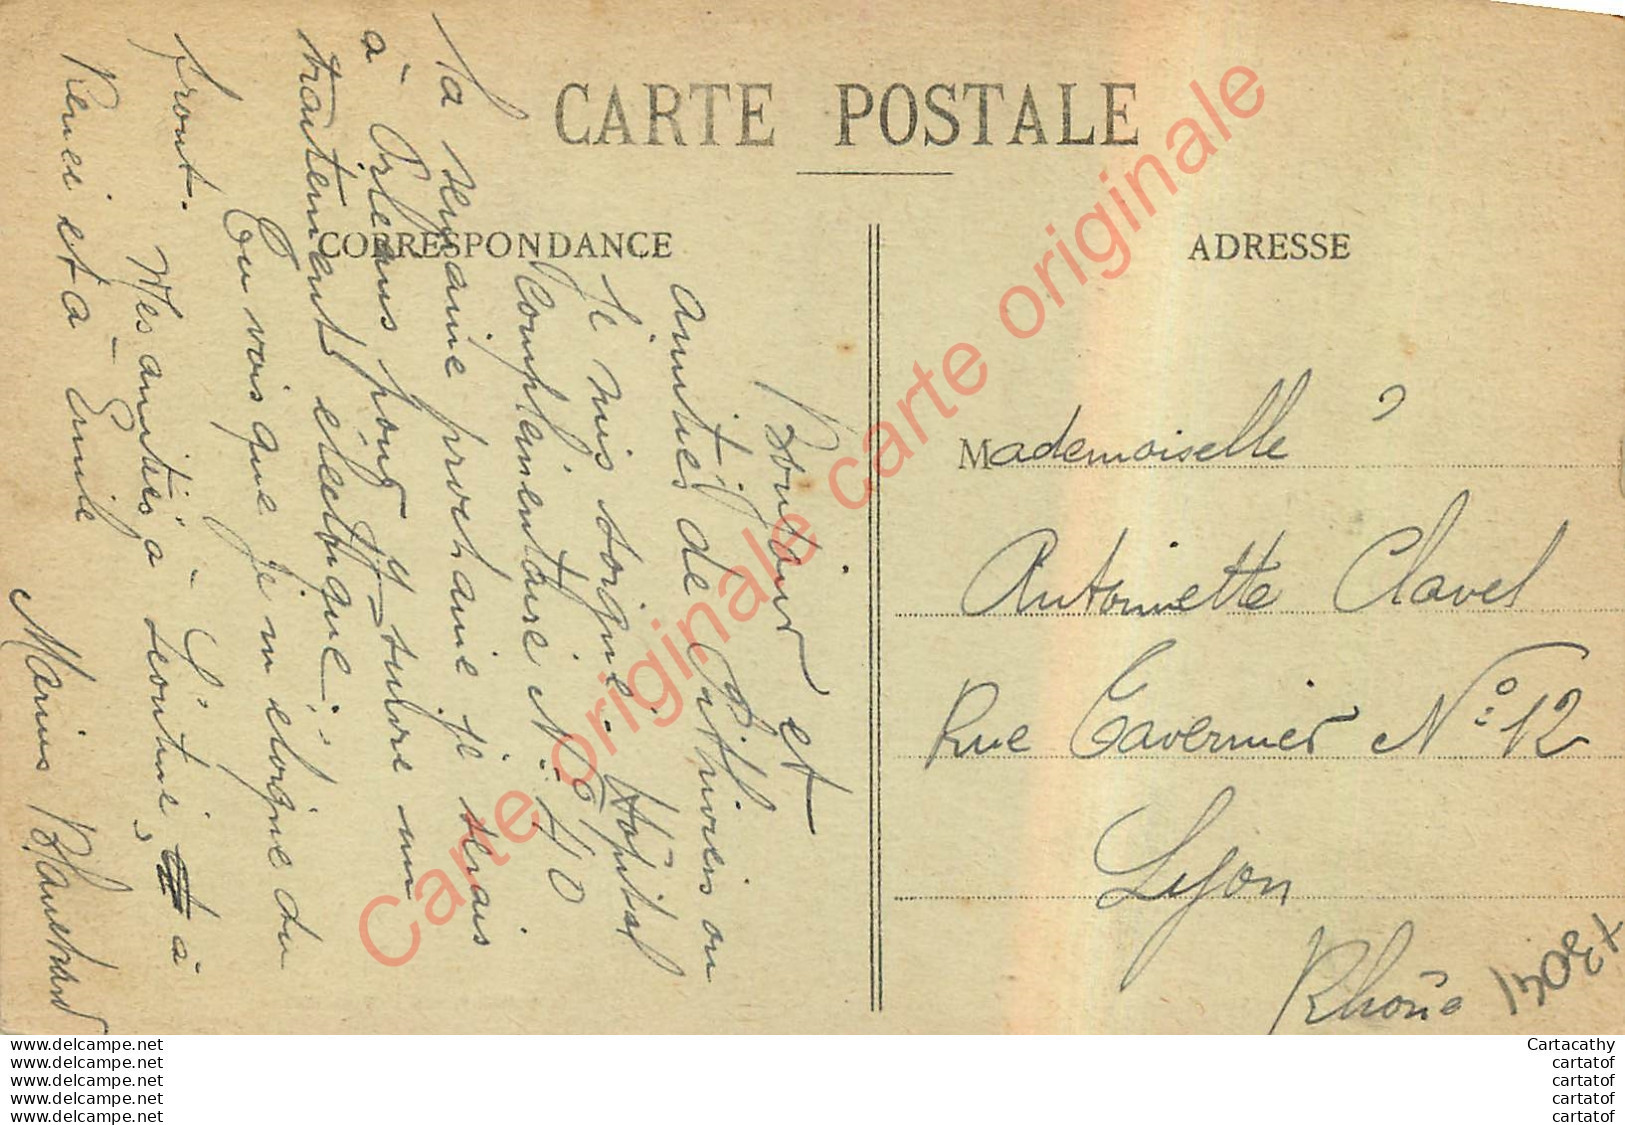 CARTE POSTALE
CORRESPONDANCE
ADRESSE
Bonjour et
amitiés de Pithiviers ou
je suis soigné. Hôpital
Complémentaire N° 40
la semaine prochaine je serais
à Orléans pour y suivre un
traitement électrique.
Tu vois que je m'eloigne du
front.
Mes amitiés à Léontine, à
Renée et à Emile
Marius Blanchard
Mademoiselle
Antoinette Clavel
Rue Tavernier N° 12
Lyon
Rhône
Carte originale carte originale
www.delcampe.net elosev42
www.delcampe.net elosev42
www.delcampe.net elosev42
www.delcampe.net elosev42
www.delcampe.net elosev42
Cartacathy
cartatof
cartatof
cartatof
cartatof